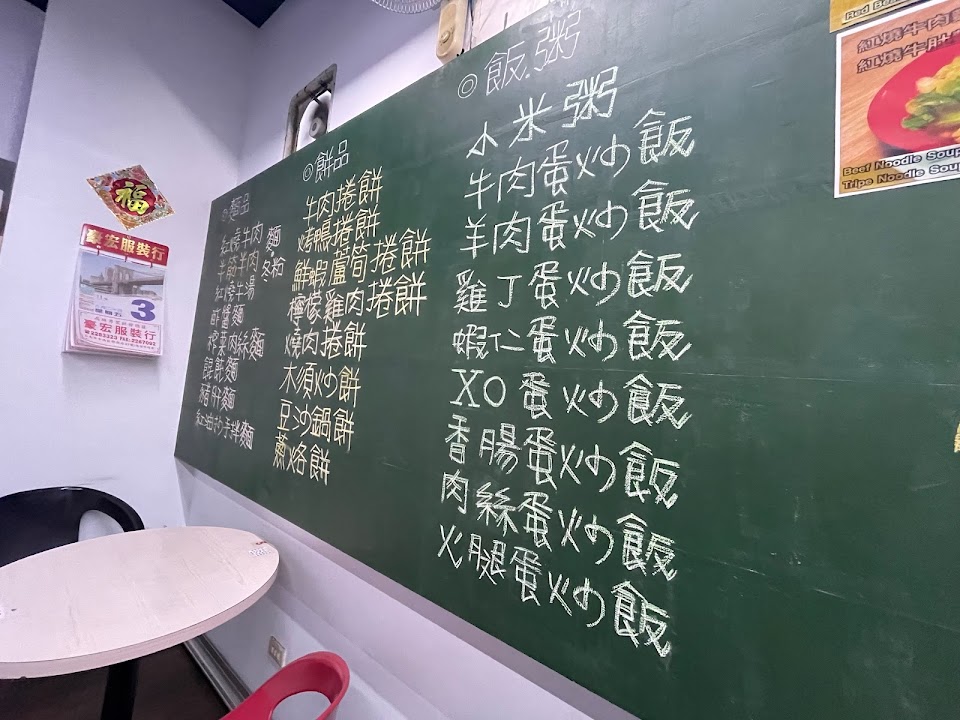 福
豪宏服裝行
星期五
3
豪宏服裝行
◎麵品
紅燒牛肉 麵
牛筋羊肉 冬粉
紅燒牛湯
榨菜肉絲麵
餛飩麵
豬肝麵
紅油抄手拌麵
◎餅品
牛肉捲餅
烤鴨捲餅
鮮蝦蘆筍捲餅
檸檬雞肉捲餅
燒肉捲餅
木須炒餅
豆沙鍋餅
蔥烙餅
◎飯.粥
小米粥
牛肉蛋炒飯
羊肉蛋炒飯
雞丁蛋炒飯
蝦仁蛋炒飯
XO蛋炒飯
香腸蛋炒飯
肉絲蛋炒飯
火腿蛋炒飯
Red
紅燒牛肉
紅燒牛肚
Beef Noodle Soup
Tripe Noodle Soup